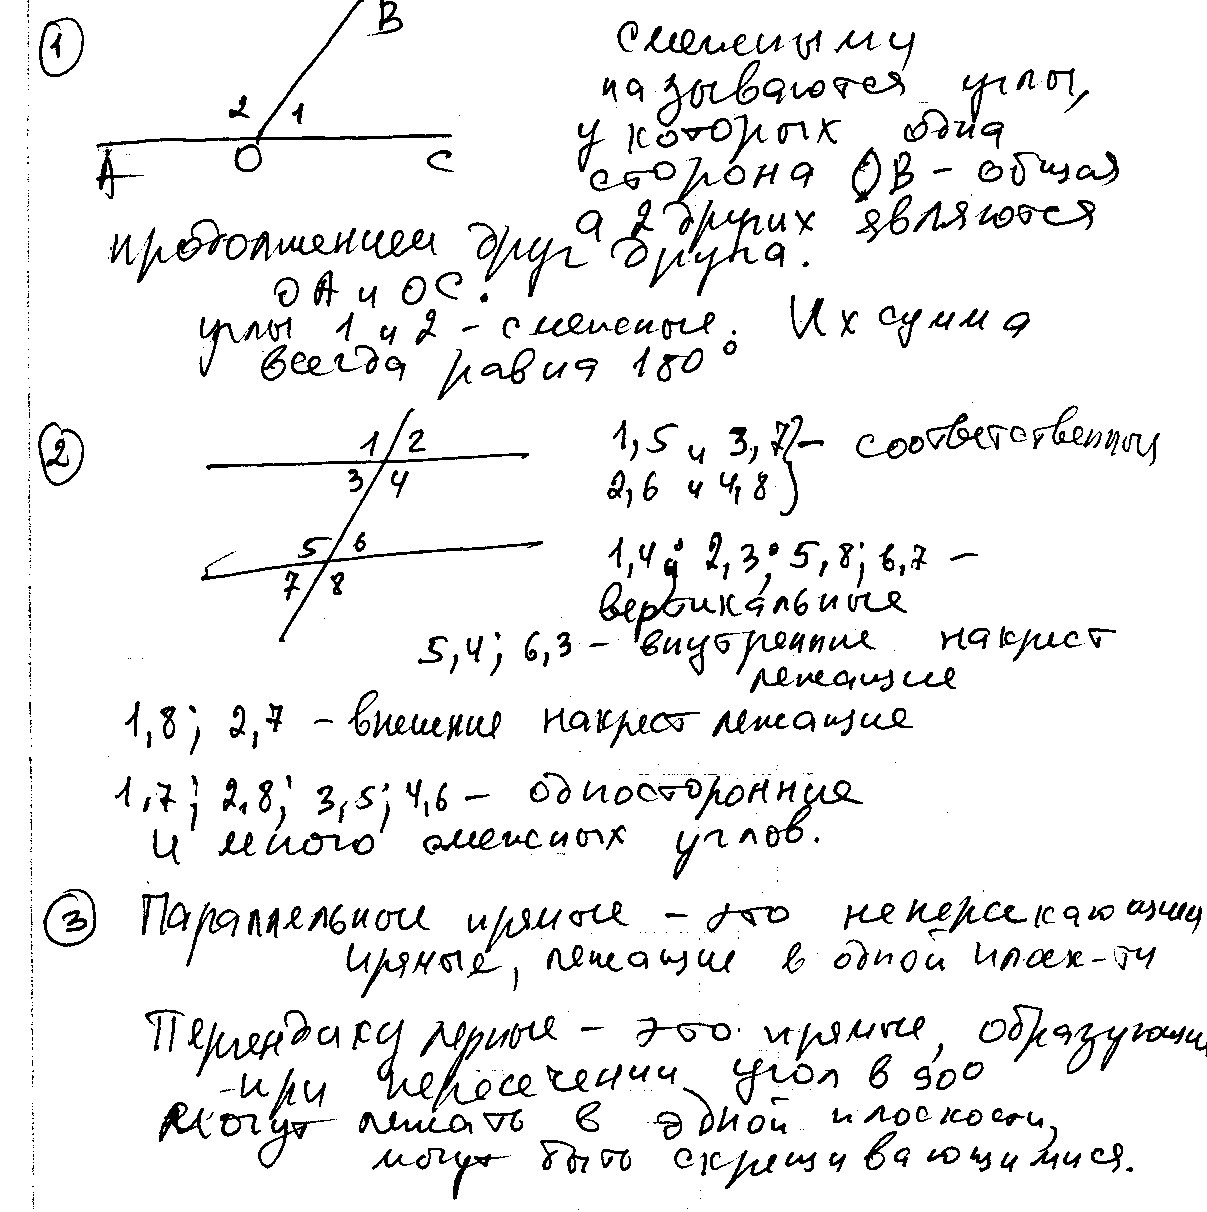 1
B
2 1
A O C
смежными
называются углы,
у которых одна
сторона OB - общая
а 2 других являются
продолжением друг друга.
OA и OC.
углы 1 и 2 - смежные. Их сумма
всегда равна 180°
2
1 2
3 4
5 6
7 8
1,5 и 3,7 } - соответственный
2,6 и 4,8 }
1,4; 2,3; 5,8; 6,7 -
вертикальные
5,4; 6,3 - внутренние накрест
лежащие
1,8; 2,7 - внешние накрест лежащие
1,7; 2,8; 3,5; 4,6 - односторонние
и много смежных углов.
3 Параллельные прямые - это непересекающиеся
прямые, лежащие в одной плоск-ти
Перпендикулярные - это прямые, образующие
при пересечении угол в 90°
могут лежать в одной плоскости,
могут быть скрещивающимися.